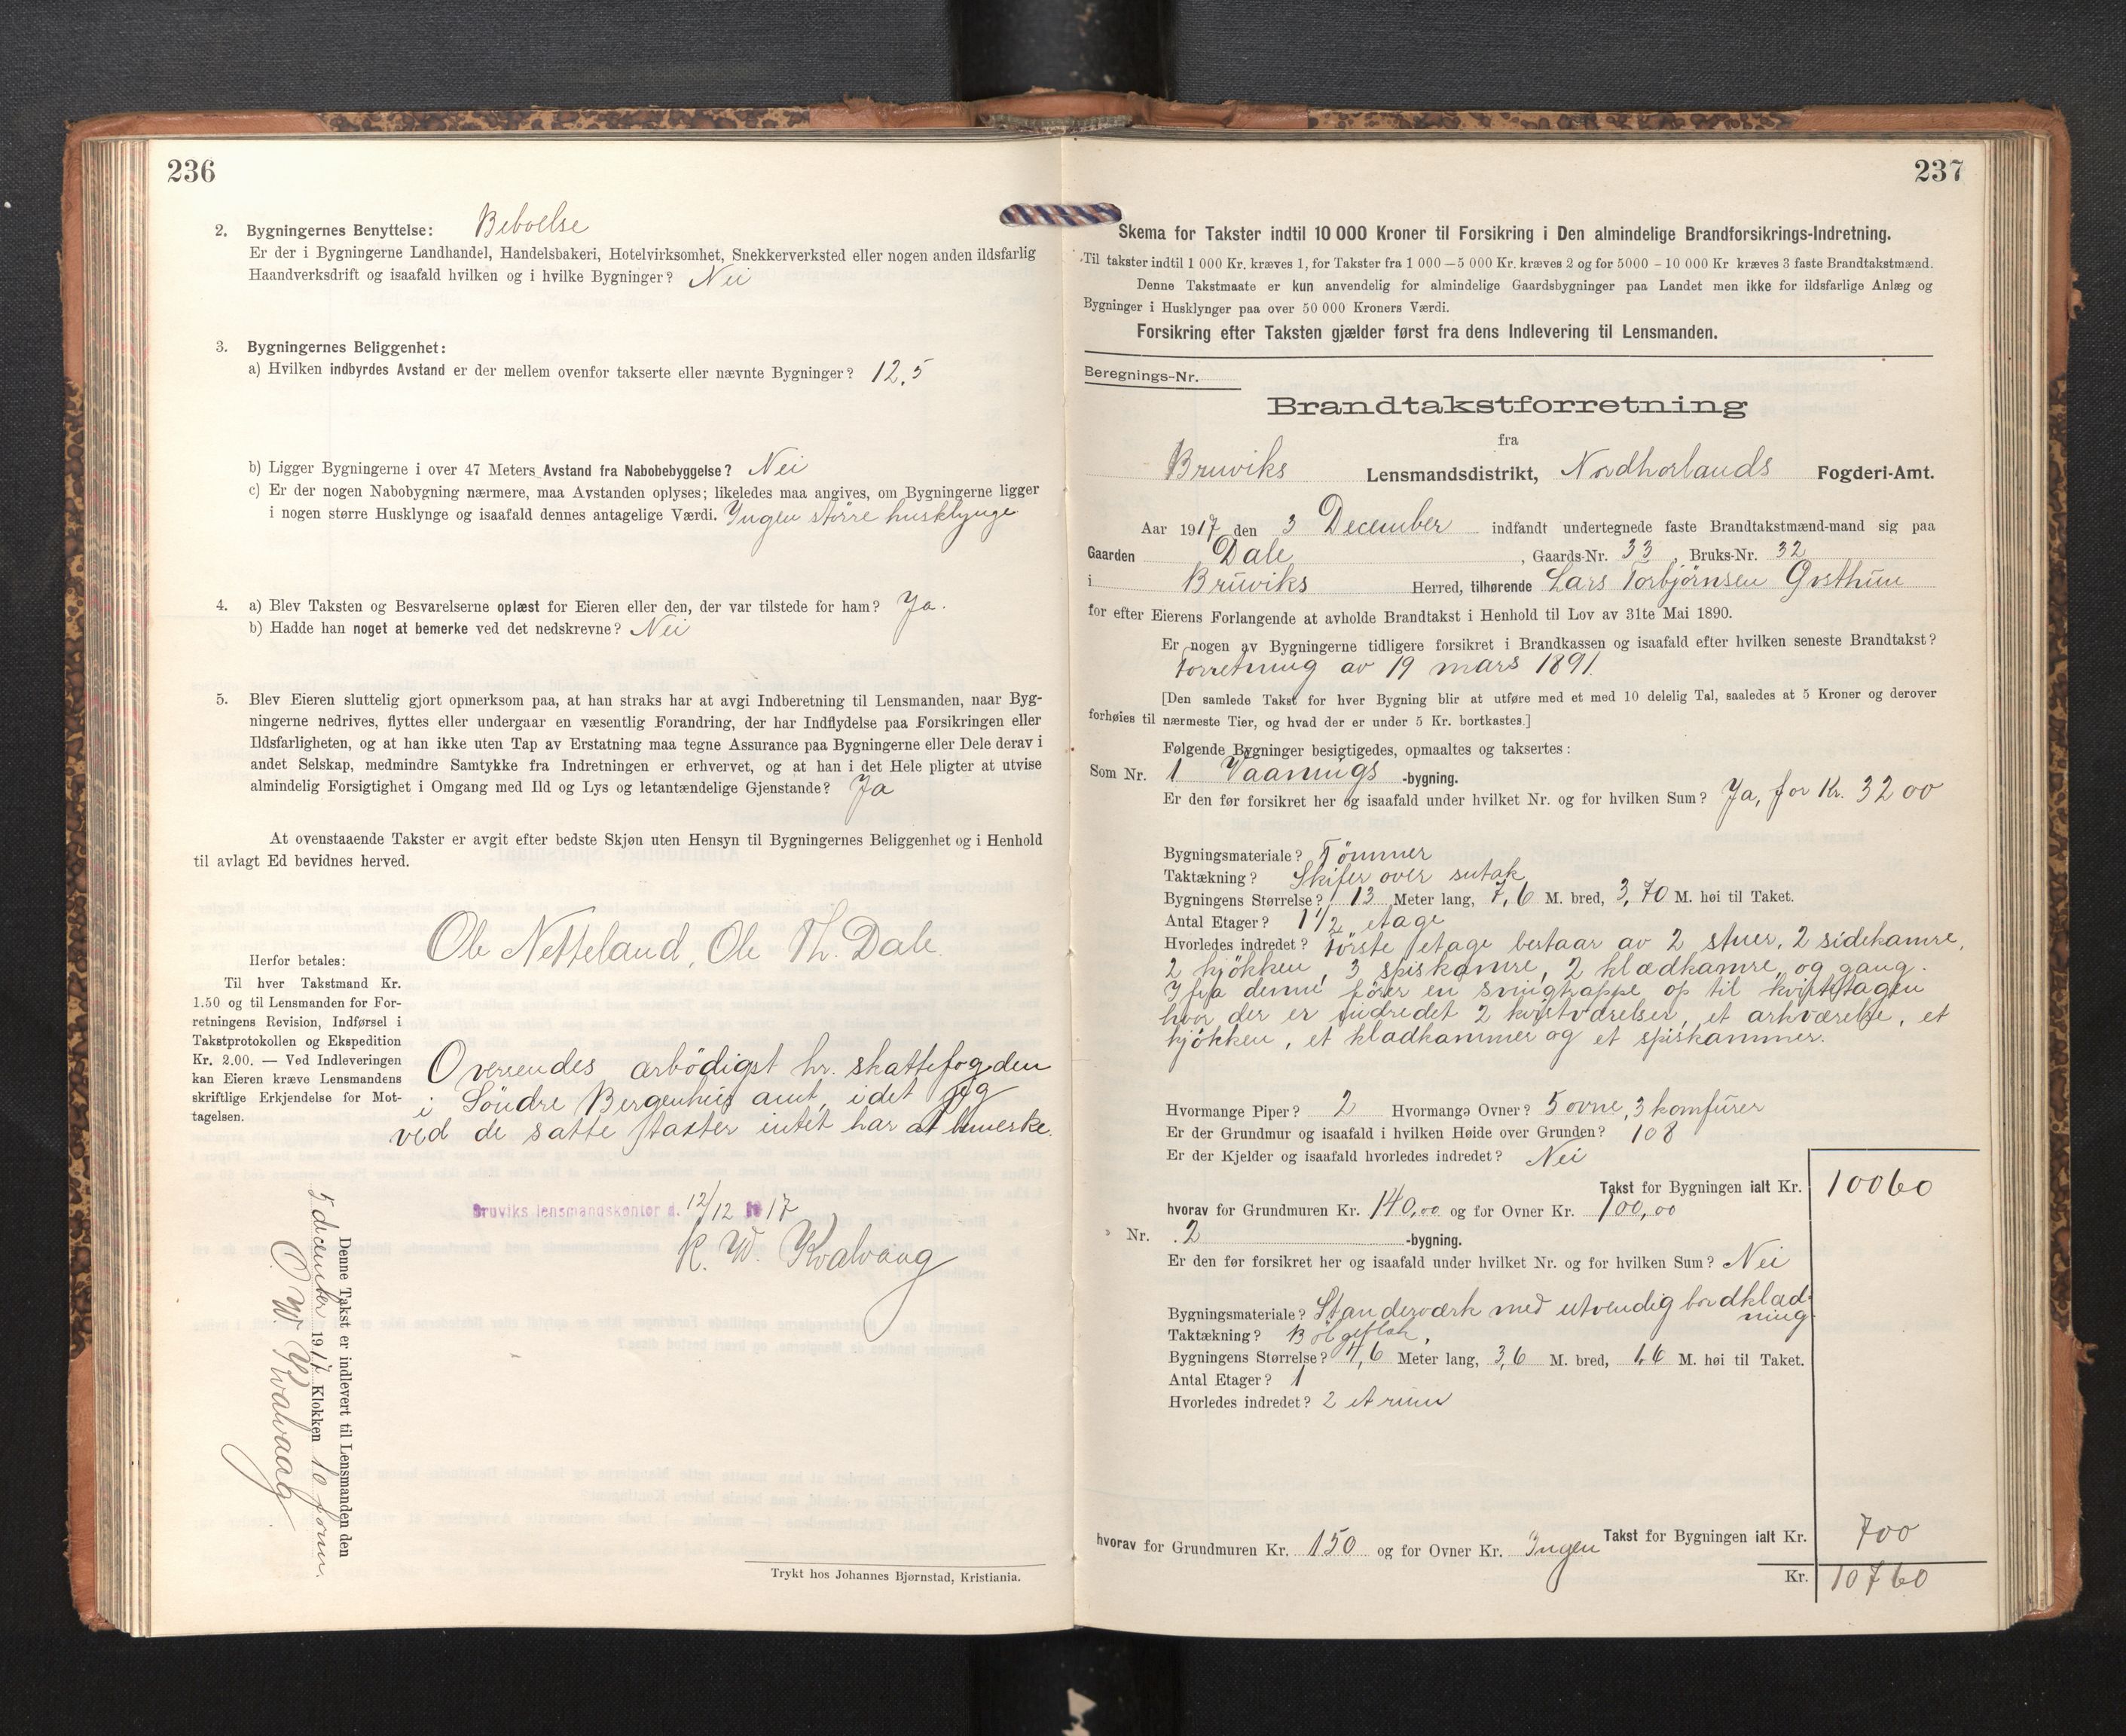 236
2. Bygningernes Benyttelse: Beboelse
Er der i Bygningerne Landhandel, Handelsbakeri, Hotelvirksomhet, Snekkerverksted eller nogen anden ildsfarlig
Haandverksdrift og isaafald hvilken og i hvilke Bygninger? Nei
3. Bygningernes Beliggenhet:
a) Hvilken indbyrdes Avstand er der mellem ovenfor takserte eller nævnte Bygninger? 12,5
b) Ligger Bygningerne i over 47 Meters Avstand fra Nabobebyggelse? Nei
c) Er der nogen Nabobygning nærmere, maa Avstanden oplyses; likeledes maa angives, om Bygningerne ligger
i nogen større Husklynge og isaafald dennes antagelige Værdi. Ingen större husklynge
4. a) Blev Taksten og Besvarelserne oplæst for Eieren eller den, der var tilstede for ham? Ja.
b) Hadde han noget at bemerke ved det nedskrevne? Nei
5. Blev Eieren sluttelig gjort opmerksom paa, at han straks har at avgi Indberetning til Lensmanden, naar Byg-
ningerne nedrives, flyttes eller undergaar en væsentlig Forandring, der har Indflydelse paa Forsikringen eller
Ildsfarligheten, og at han ikke uten Tap av Erstatning maa tegne Assurance paa Bygningerne eller Dele derav i
andet Selskap, medmindre Samtykke fra Indretningen er erhvervet, og at han i det Hele pligter at utvise
almindelig Forsigtighet i Omgang med Ild og Lys og letantændelige Gjenstande? Ja
At ovenstaaende Takster er avgit efter bedste Skjøn uten Hensyn til Bygningernes Beliggenhet og i Henhold
til avlagt Ed bevidnes herved.
Ole Netteland, Ole Th. Dale.
Herfor betales:
Til hver Takstmand Kr.
1.50 og til Lensmanden for For-
retningens Revision, Indførsel i
Takstprotokollen og Ekspedition
Kr. 2.00. — Ved Indleveringen
kan Eieren kræve Lensmandens
skriftlige Erkjendelse for Mot-
tagelsen.
Oversendes ærbödigst hr. skattefogden
i Söndre Bergenhus amt, idet jeg
ved de satte takster intet har at bemerke.
Bruviks lensmandskontor d. 12/12 1917
K. W. Kvalvaag
Denne Takst er indlevert til Lensmanden den
5 december 1917 Klokken 10 form.
O. W. Kvalvaag
Trykt hos Johannes Bjørnstad, Kristiania.
237
Skema for Takster indtil 10 000 Kroner til Forsikring i Den almindelige Brandforsikrings-Indretning.
Til takster indtil 1 000 Kr. kræves 1, for Takster fra 1 000 — 5 000 Kr. kræves 2 og for 5000 - 10 000 Kr kræves 3 faste Brandtakstmænd.
Denne Takstmaate er kun anvendelig for almindelige Gaardsbygninger paa Landet men ikke for ildsfarlige Anlæg og
Bygninger i Husklynger paa over 50 000 Kroners Værdi.
Forsikring efter Taksten gjælder først fra dens Indlevering til Lensmanden.
Beregnings-Nr.
Brandtakstforretning
fra
Bruviks Lensmandsdistrikt, Nordhorlands Fogderi-Amt.
Aar 1917 den 3 December indfandt undertegnede faste Brandtakstmænd-mand sig paa
Gaarden Dale, Gaards-Nr. 33, Bruks-Nr. 32
i Bruviks Herred, tilhørende Lars Torbjörnsen
for efter Eierens Forlangende at avholde Brandtakst i Henhold til Lov av 31te Mai 1890.
Er nogen av Bygningerne tidligere forsikret i Brandkassen og isaafald efter hvilken seneste Brandtakst?
Forretning av 19 mars 1891.
[Den samlede Takst for hver Bygning blir at utføre med et med 10 delelig Tal, saaledes at 5 Kroner og derover
forhøies til nærmeste Tier, og hvad der er under 5 Kr. bortkastes.]
Følgende Bygninger besigtigedes, opmaaltes og taksertes:
Som Nr. 1 Vaanings -bygning.
Er den før forsikret her og isaafald under hvilket Nr. og for hvilken Sum? Ja, for Kr. 3200
Bygningsmateriale? Tömmer
Taktækning? Skifer over sutak
Bygningens Størrelse? 13 Meter lang, 7,6 M. bred, 3,70 M. høi til Taket.
Antal Etager? 1 1/2 etage
Hvorledes indredet? Förste etage bestaar av 2 stuer, 2 sidekamre,
2 kjökken, 3 spiskamre, 2 klædkamre og gang.
Ifra denne förer en svingtrappe op til kvistetagen
hvor der er indredet 2 kvistværelser, et arkværelse, et
kjökken, et klædkammer og et spiskammer.
Hvormange Piper? 2 Hvormange Ovner? 5 ovne, 3 komfürer
Er der Grundmur og isaafald i hvilken Høide over Grunden? 108
Er der Kjelder og isaafald hvorledes indredet? Nei
Takst for Bygningen ialt Kr. 10060
hvorav for Grundmuren Kr. 140,00 og for Ovner Kr. 100,00
» Nr. 2 -bygning.
Er den før forsikret her og isaafald under hvilket Nr. og for hvilken Sum? Nei
Bygningsmateriale? Standerværk med utvendig bordklæd-
ning
Taktækning? Bölgeblek,
Bygningens Størrelse? 4,6 Meter lang, 3,6 M. bred, 1,6 M. høi til Taket.
Antal Etager? 1
Hvorledes indredet? 2 et rum
Takst for Bygningen ialt Kr. 700
hvorav for Grundmuren Kr. 150 og for Ovner Kr. Ingen
Kr. 10760